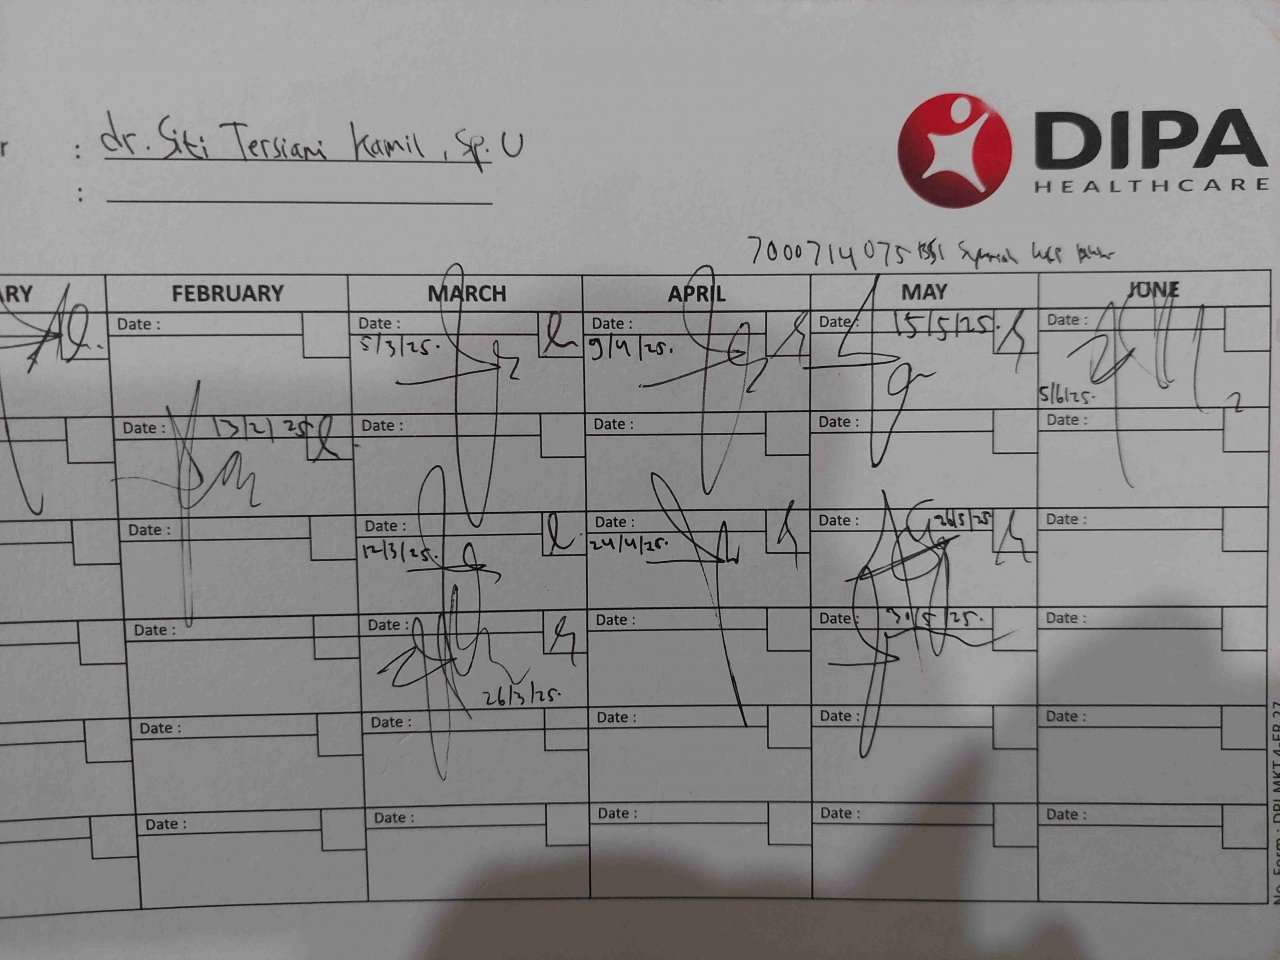 r : dr. Siti Tersiani Kamil, Sp. U
:
DIPA
HEALTHCARE
7000714075 BSI
ARY FEBRUARY MARCH APRIL MAY JUNE
Date : Date : Date : Date : 15/5/25. Date :
5/3/25. 9/4/25. 5/6/25.
Date : 13/2/25 Date : Date : Date : Date :
Date : Date : Date : Date : 26/5/25 Date :
12/3/25. 24/4/25.
Date : Date : Date : Date : 30/5/25. Date :
26/3/25.
Date : Date : Date : Date : Date :
Date : Date : Date : Date : Date :